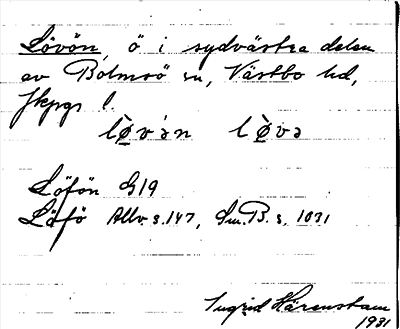 Lövön, ö i sydvästra delen
av Bolmsö sn, Västbo hd,
Jkpgs l.
lø̀vən lø̀və
Löfön G19
Löfö Allv s.147, Sm.B. s. 1031
Ingrid Härenstam
1931